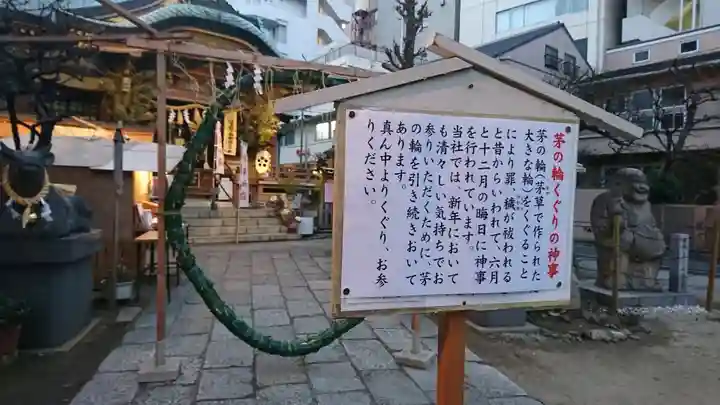 茅の輪くぐりの神事
茅の輪(茅草で作られた
大きな輪)をくぐること
により罪、穢が祓われる
と昔からいわれて、六月
と十二月の晦日に神事
を行われています。
当社では、新年において
も清々しい気持ちでお
参りいただくために、茅
の輪を引き続きおいて
あります。
真ん中よりくぐり、お参
りください。